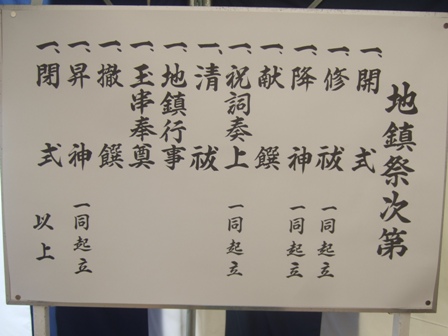 地鎮祭次第
一、開式
一、修祓 一同起立
一、降神 一同起立
一、献饌
一、祝詞奏上 一同起立
一、清祓
一、地鎮行事
一、玉串奉奠
一、撤饌
一、昇神 一同起立
一、閉式
以上